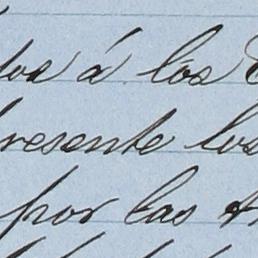 á los
presente los
por las